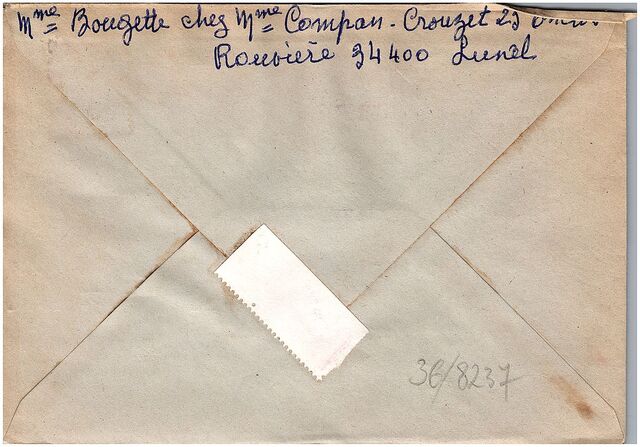 Mme Bougette chez Mme Compan-Crouzet 23
Rouvière 34400 Lunel
36/8237